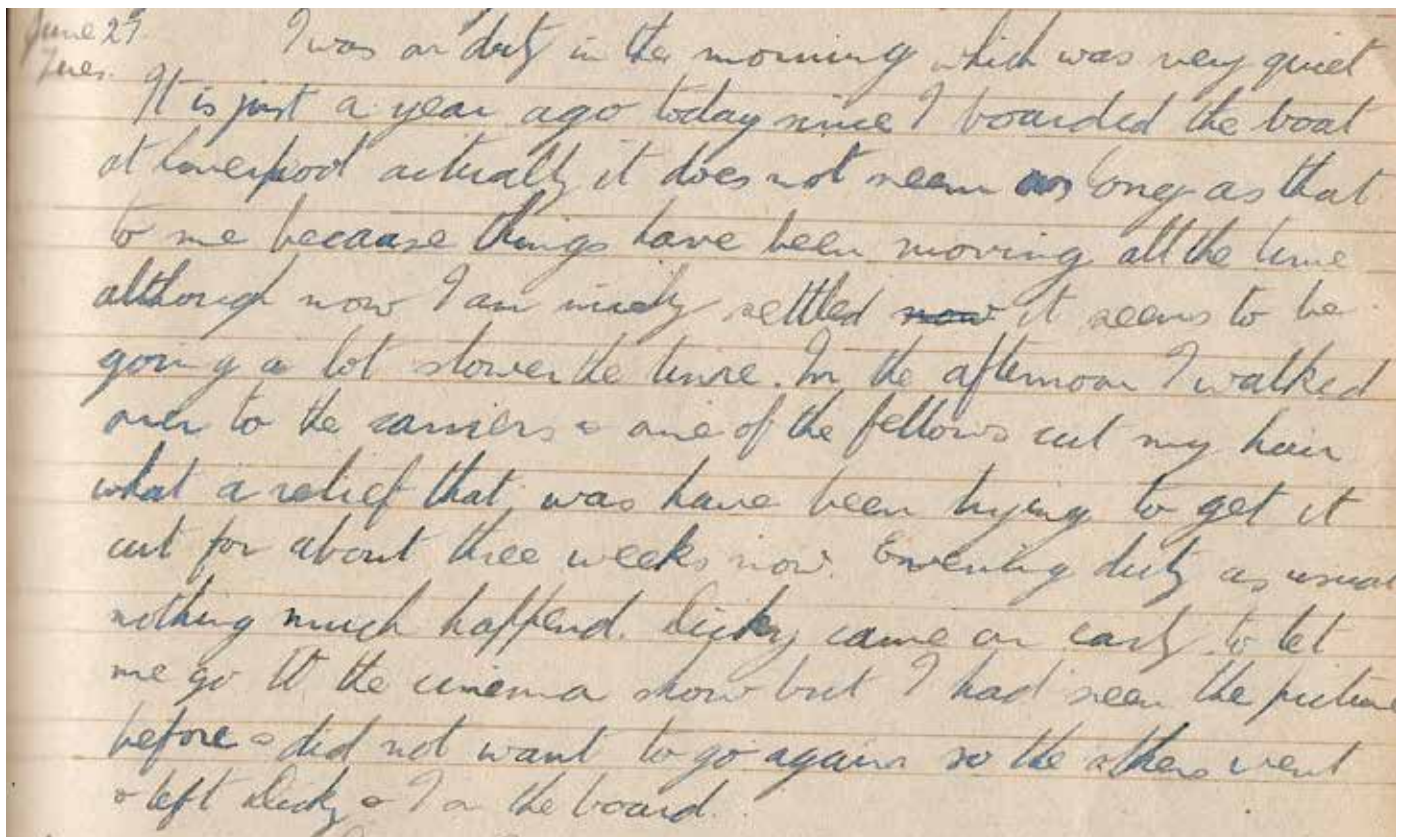 June 29. I was on duty in the morning which was very quiet
Tues. It is just a year ago today since I boarded the boat
at Liverpool actually it does not seem as long as that
to me because things have been moving all the time
although now I am nicely settled now it seems to be
going a lot slower the time. In the afternoon I walked
over to the carriers & one of the fellows cut my hair
what a relief that was have been trying to get it
cut for about three weeks now. Evening duty as usual
nothing much happend. Dicky came on early to let
me go to the cinema show but I had seen the picture
before & did not want to go again so the others went
& left Dicky & I on the board.